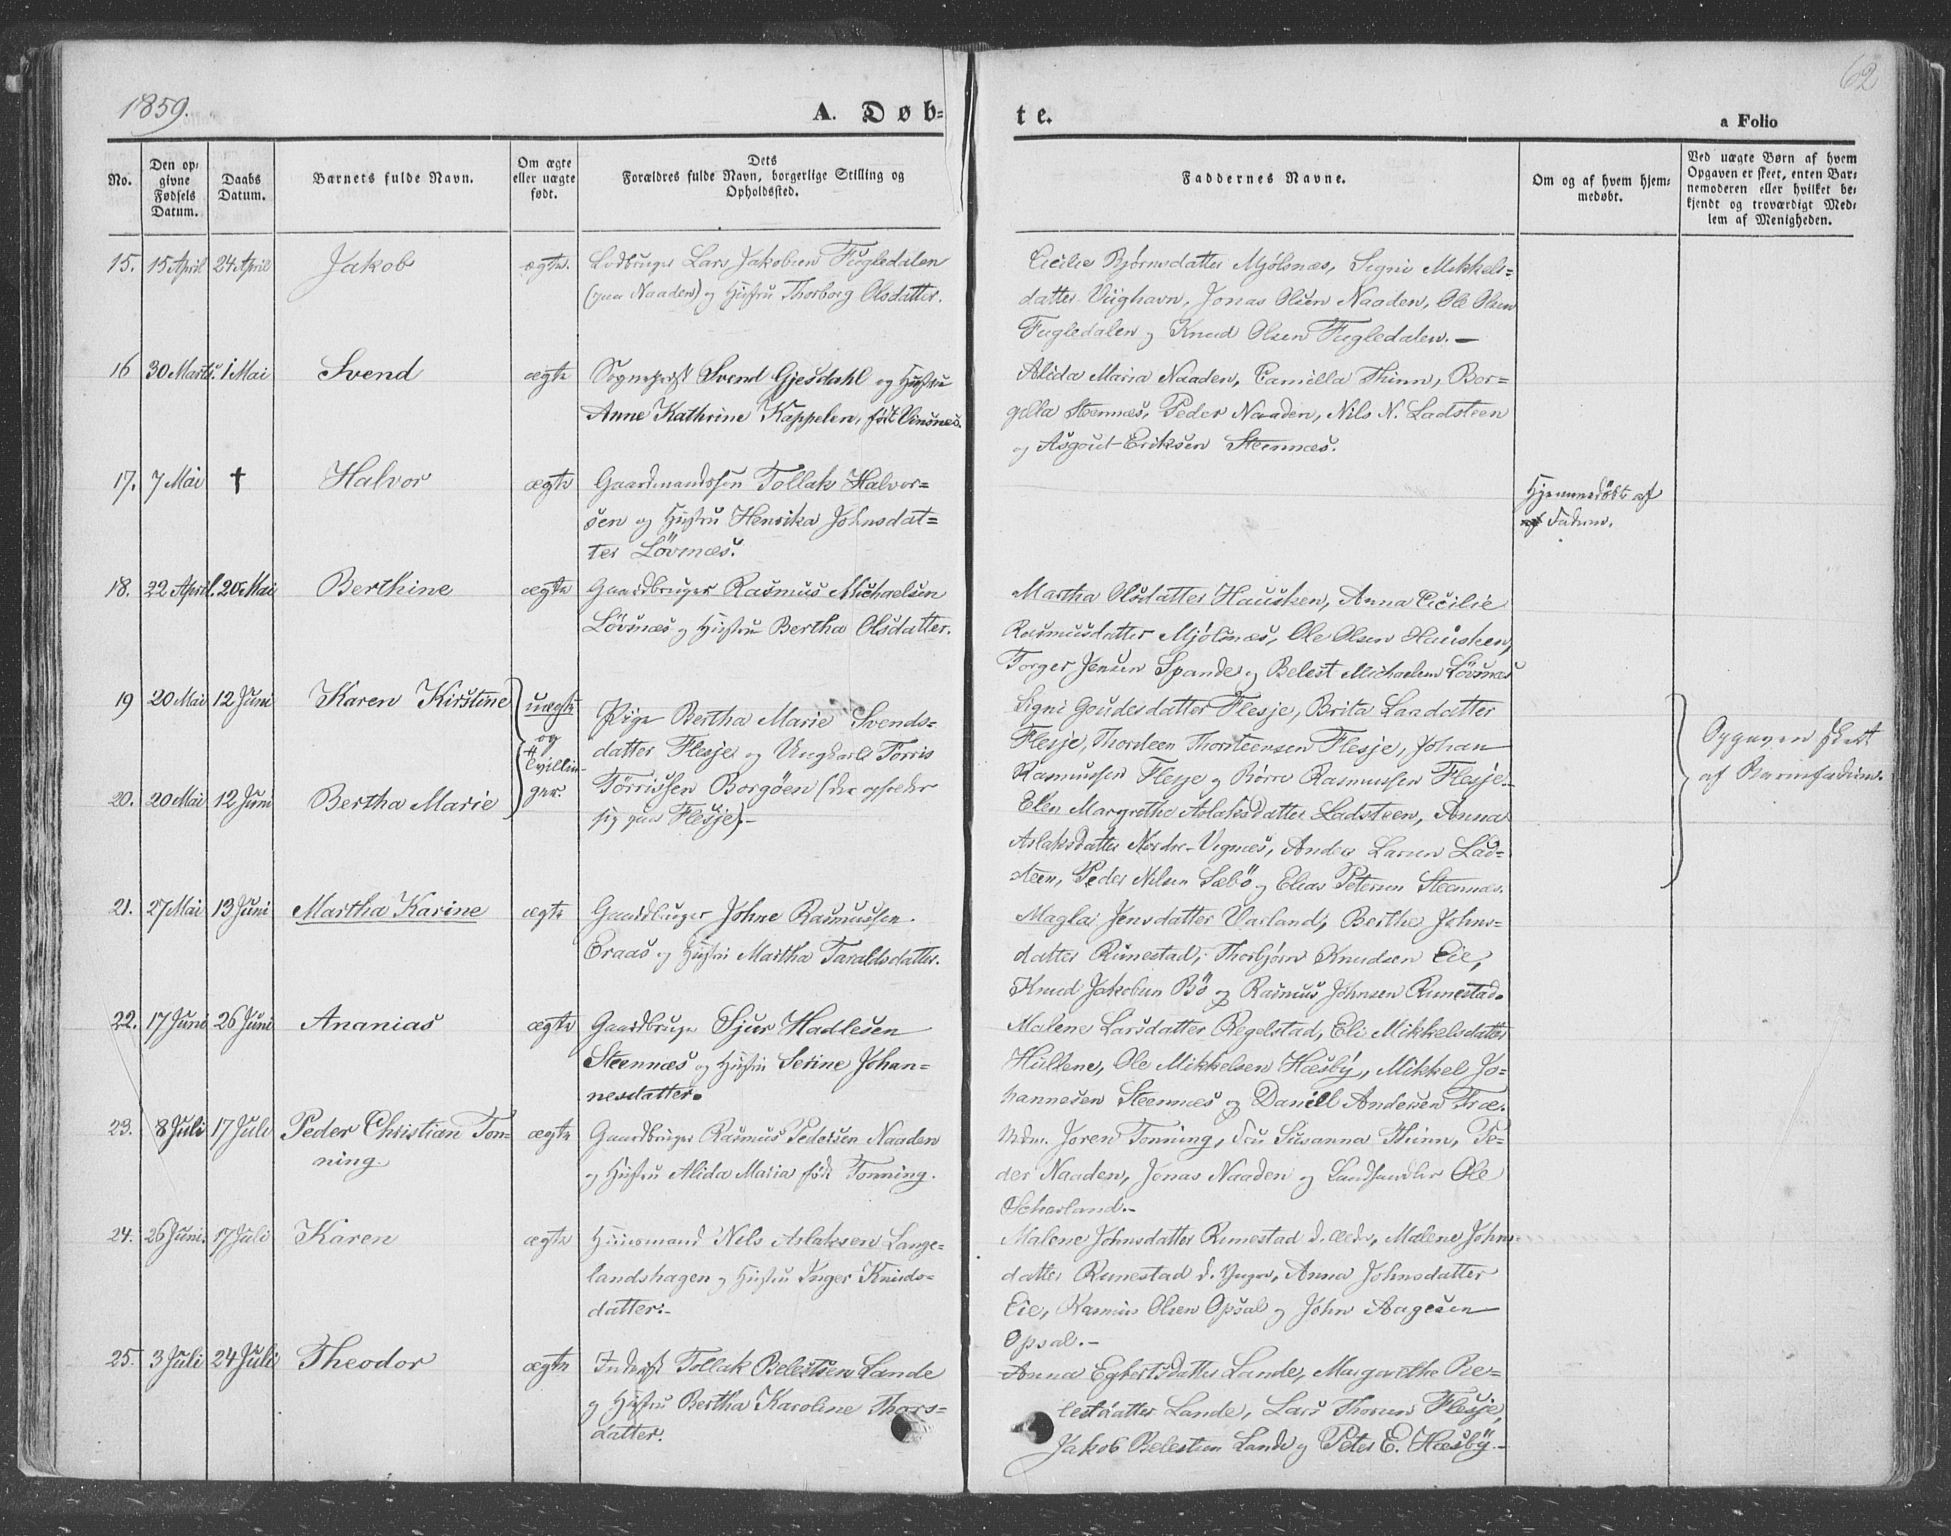 1859.
62
A. Døb-
te.
a Folio
No.
Den op-
givne
Fødsels
Datum.
Daabs
Datum.
Barnets fulde Navn.
Om ægte
eller uægte
født.
Dets
Forældres fulde Navn, borgerlige Stilling og
Opholdssted.
Faddernes Navne.
Om og af hvem hjem-
medøbt.
Ved uægte Børn af hvem
Opgaven er skeet, enten Bar-
nemoderen eller hvilket be-
kjendt og troværdigt Med-
lem af Menigheden.
15. 15 April 24 April Jakob ægte. Lodbruger Lars Jakobsen Fugledalen
(paa Naaden) og Hustru Thorborg Olsdatter.
Cicilie Bjørnsdatter Mjølsnæs, Signi Mikkels-
datter Viighavn, Jonas Olsen Naaden, Ole Olsen
Fugledalen og Knud Olsen Fugledalen.
16 30 Marts 1 Mai Svend ægte Sognepræst Svend Gjesdahl og Hustru
Anne Kathrine Kappelen, født Vinsnes.
Alida Maria Naaden, Camilla Thinn, Bor-
gilla Steennæs, Peder Naaden, Nils N. Ladsteen
og Asgout Eriksen Steennæs.
17. 7 Mai † Halvor ægte Gaardmandssøn Tollak Halvor-
sen og Hustru Henrika Johnsdat-
ter Løvsnæs.
Hjemmedøbt af
Faderen.
18. 22 April. 20 Mai Berthine ægte Gaardbruger Rasmus Michaelsen
Løvsnæs og Hustru Bertha Olsdatter.
Martha Olsdatter Hausken, Anna Cicilie
Rasmusdatter Mjølsnæs, Ole Olsen Hausken,
Torger Jensen Spande og Belest Michaelsen Løvsnæs
19 20 Mai 12 Juni Karen Kirstine uægte
og
Tvillin-
ger.
Pige Bertha Marie Svends-
datter Flesje og Ungkarl Torris
Torrissen Borgøen (der opholder
sig paa Flesje).
Signi Goudesdatter Flesje, Brita Larsdatter
Flesje, Thordeen Thorsteensen Flesje, Johan
Rasmussen Flesje og Børre Rasmussen Flesje.
Opgaven skeet
af Barnefaderen.
20. 20 Mai 12 Juni Bertha Marie
Elen Margrethe Aslaksdatter Ladsteen, Anna
Aslaksdatter Nordre-Vignæs, Anders Larsen Lad-
steen, Peder Nilsen Sæbø og Elias Petersen Steennæs.
21. 27 Mai 13 Juni Martha Karine ægte Gaardbruger Johne Rasmussen
Eraas og Hustru Martha Taraldsdatter.
Magla Jensdatter Varland, Berthe Johns-
datter Runestad, Thorbjørn Knudsen Eie,
Knud Jakobsen Bø og Rasmus Johnsen Runestad.
22. 17 Juni 26 Juni Ananias ægte Gaardbruger Sjur Hadlesen
Steennæs og Hustru Serine Johan-
nesdatter.
Malene Larsdatter Regelstad, Eli Mikkelsdatter
Hullene, Ole Mikkelsen Hæsby, Mikkel Jo-
hannesen Steennæs og Daniell Andersen Træ.
23. 8 Juli 17 Juli Peder Christian Ton-
ning ægte Gaardbruger Rasmus Pedersen Naaden
og Hustru Alida Maria født Tonning.
Mdm. Joren Tonning, Fru Susanna Thinn, Pe-
der Naaden, Jonas Naaden og Landhandler Ole
Scharland.-
24. 26 Juni. 17 Juli Karen ægte Huusmand Nils Aslaksen Lange-
landshagen og Hustru Inger Knuds-
datter.-
Malene Johnsdatter Runestad d. Ældre, Malene Johns-
datter Runestad d. Yngre, Anna Johnsdatter
Eie, Rasmus Olsen Opsal og John Aagesen
Opsal.-
25. 3 Juli 24 Juli Theodor ægte Inderst Tollak Belestsen Lande
og Hustru Bertha Karoline Thors-
datter.
Anna Egbertsdatter Lande, Margarethe Be-
lestdatter Lande, Lars Thorsen Flesje,
Jakob Belestsen Lande og Peter E. Hæsby.-